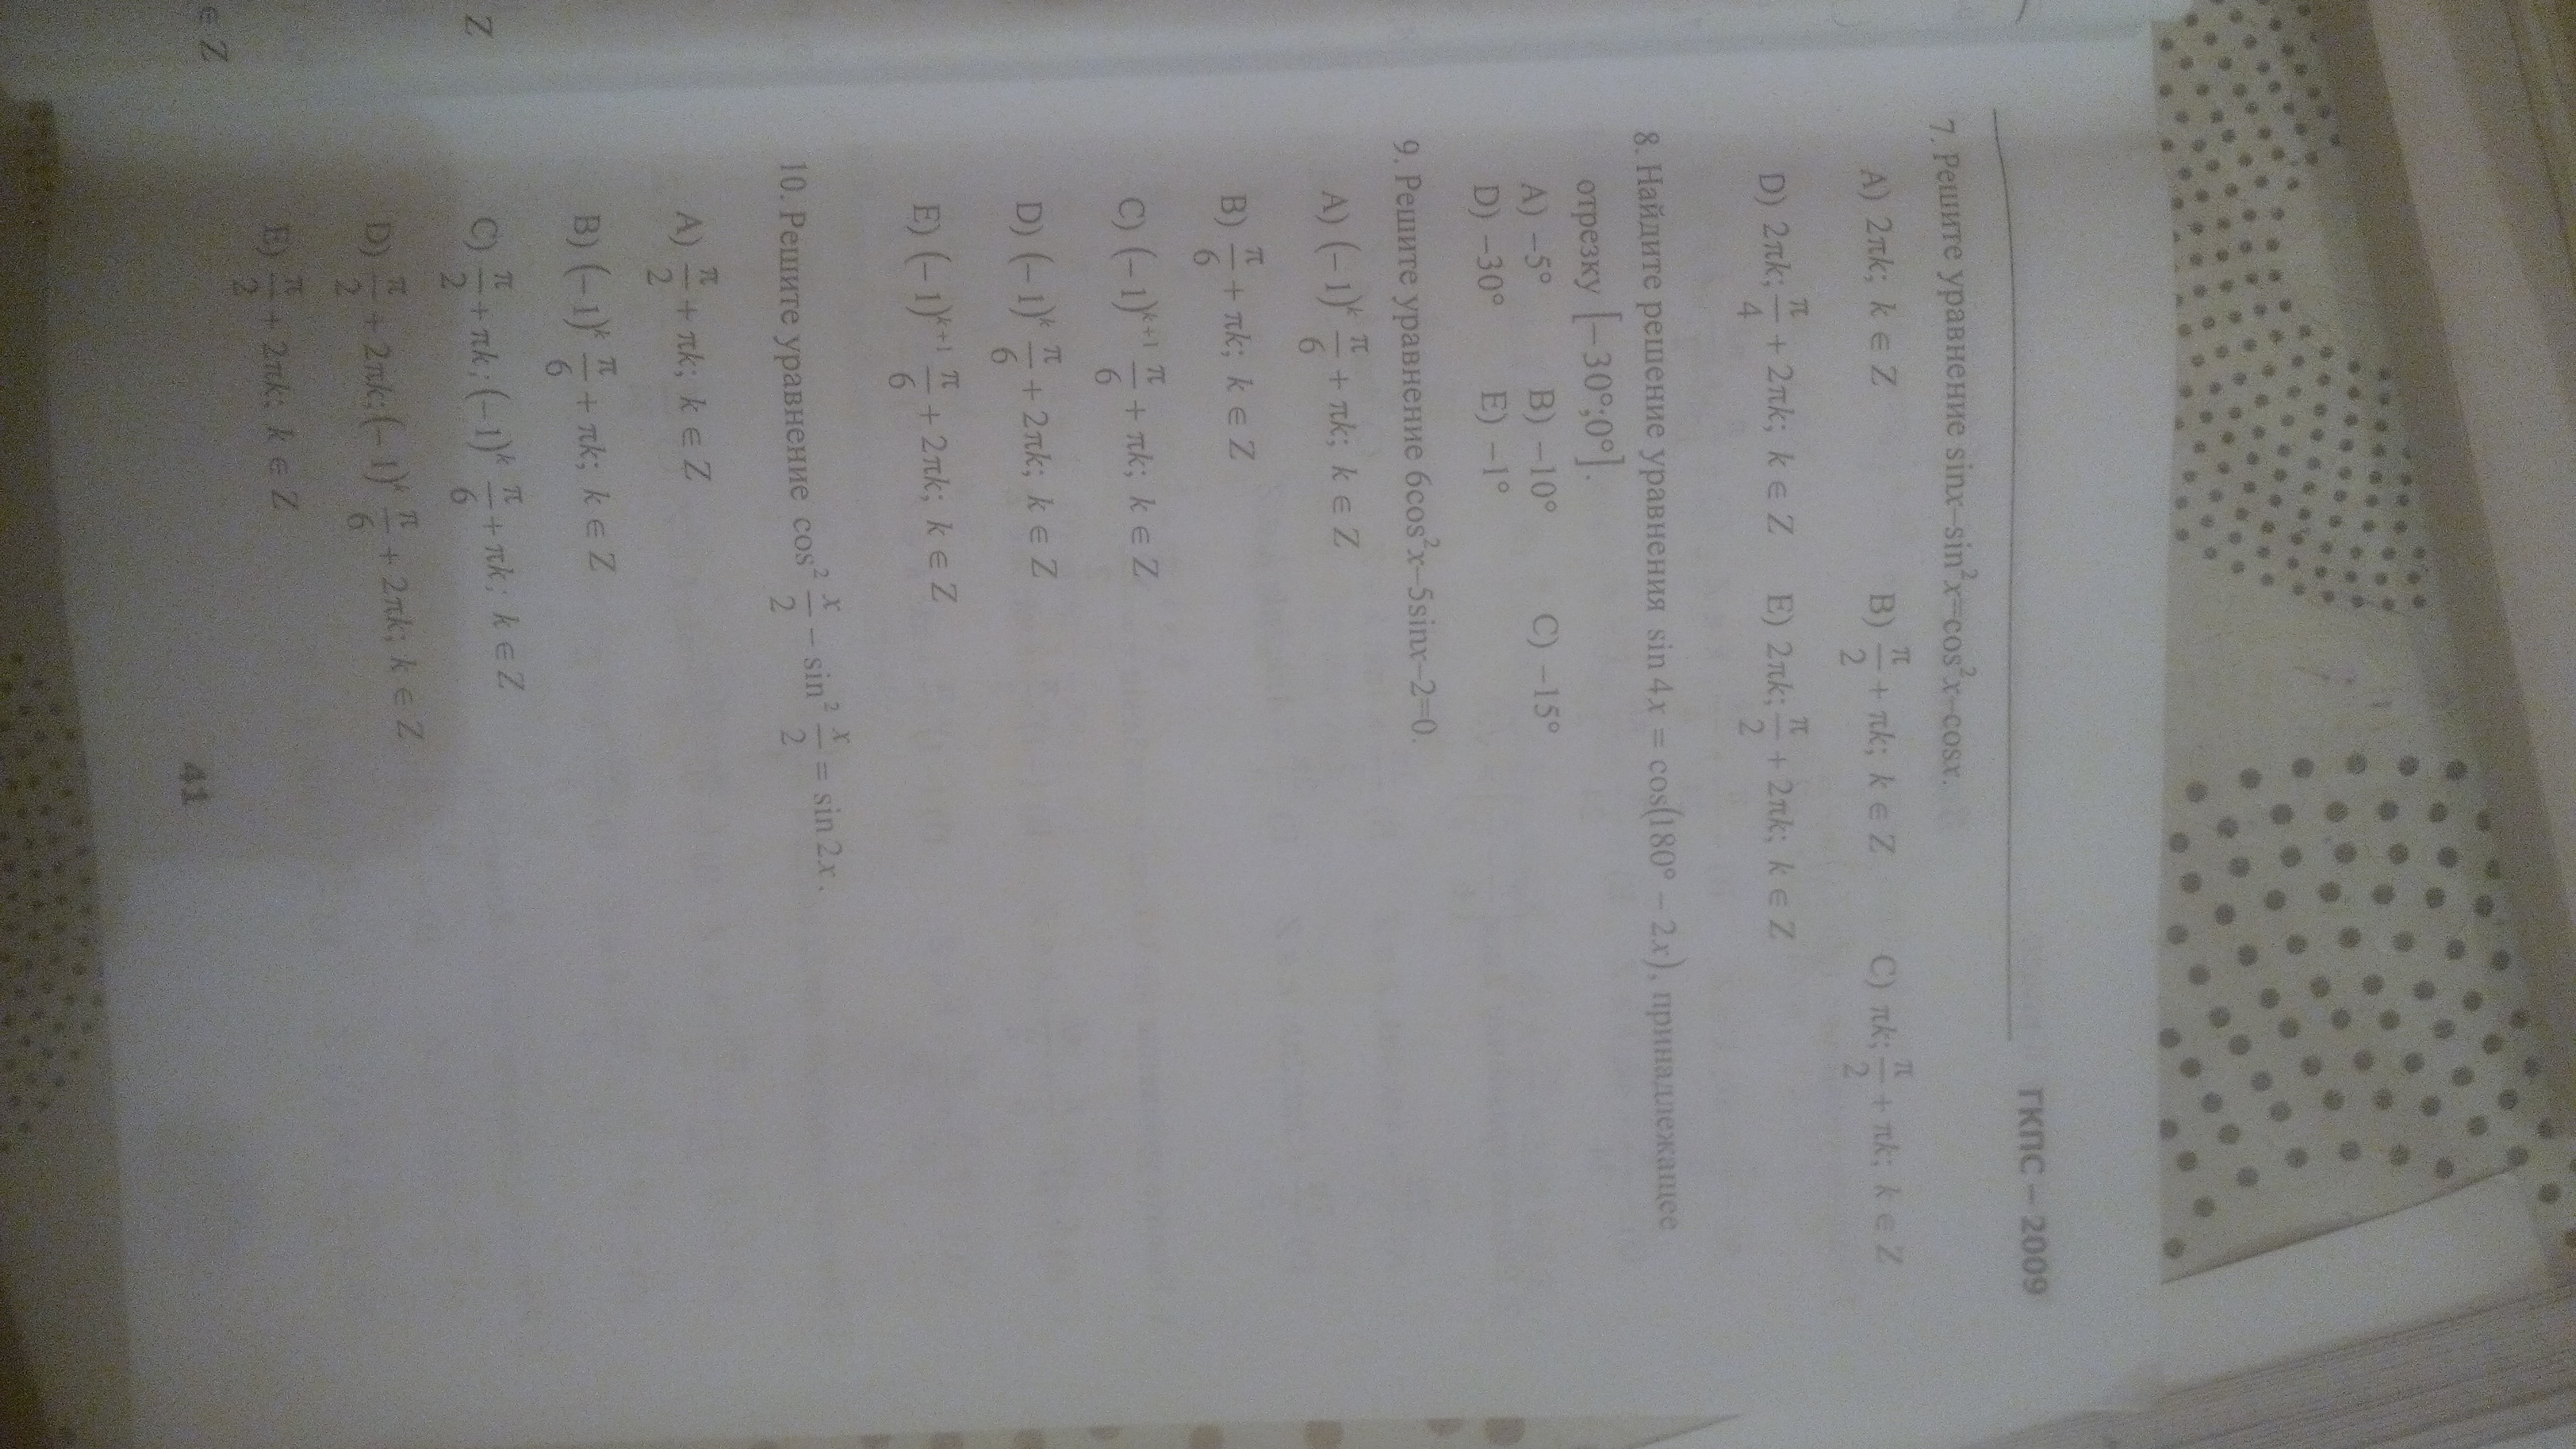 ГКПС – 2009
7. Решите уравнение sinx–sin²x=cos²x–cosx.
A) 2πk; k ∈ Z B) π/2 + πk; k ∈ Z C) πk; π/2 + πk; k ∈ Z
D) 2πk; π/4 + 2πk; k ∈ Z E) 2πk; π/2 + 2πk; k ∈ Z
8. Найдите решение уравнения sin 4x = cos(180° – 2x), принадлежащее
отрезку [–30°;0°].
A) –5° B) –10° C) –15°
D) –30° E) –1°
9. Решите уравнение 6cos²x–5sinx–2=0.
A) (–1)ᵏ π/6 + πk; k ∈ Z
B) π/6 + πk; k ∈ Z
C) (–1)ᵏ⁺¹ π/6 + πk; k ∈ Z
D) (–1)ᵏ π/6 + 2πk; k ∈ Z
E) (–1)ᵏ⁺¹ π/6 + 2πk; k ∈ Z
10. Решите уравнение cos² x/2 – sin² x/2 = sin 2x.
A) π/2 + πk; k ∈ Z
B) (–1)ᵏ π/6 + πk; k ∈ Z
C) π/2 + πk; (–1)ᵏ π/6 + πk; k ∈ Z
D) π/2 + 2πk; (–1)ᵏ π/6 + 2πk; k ∈ Z
E) π/2 + 2πk; k ∈ Z
41
Z
∈ Z